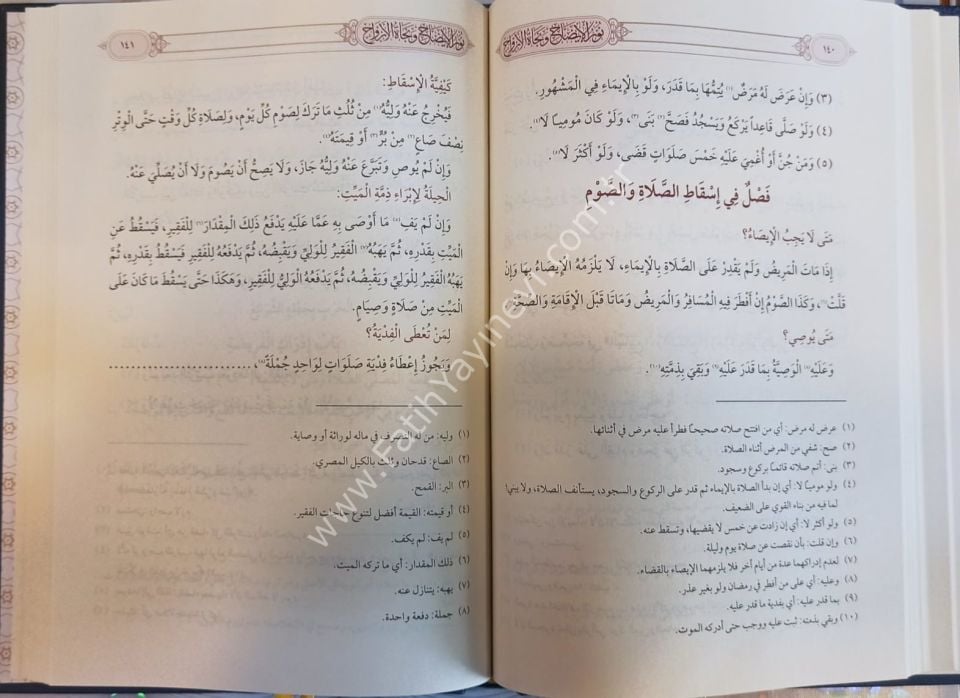 نور الإيضاح ونجاة الأرواح
١٤٠
(٣) وَإِنْ عَرَضَ لَهُ مَرَضٌ (١) يُتِمُّهَا بِمَا قَدَرَ، وَلَوْ بِالْإِيمَاءِ فِي الْمَشْهُورِ.
(٤) وَلَوْ صَلَّى قَاعِداً يَرْكَعُ وَيَسْجُدُ فَصَحَّ (٢) بَنَى (٣)، وَلَوْ كَانَ مُومِيًا لَا (٤).
(٥) وَمَنْ جُنَّ أَوْ أُغْمِيَ عَلَيْهِ خَمْسَ صَلَوَاتٍ قَضَى، وَلَوْ أَكْثَرَ لَا (٥).
فَصْلٌ فِي إِسْقَاطِ الصَّلَاةِ وَالصَّوْمِ
مَتَى لَا يَجِبُ الْإِيصَاءُ؟
إِذَا مَاتَ الْمَرِيضُ وَلَمْ يَقْدِرْ عَلَى الصَّلَاةِ بِالْإِيمَاءِ، لَا يَلْزَمُهُ الْإِيصَاءُ بِهَا وَإِنْ
قَلَّتْ (٦)، وَكَذَا الصَّوْمُ إِنْ أَفْطَرَ فِيهِ الْمُسَافِرُ وَالْمَرِيضُ وَمَاتَا قَبْلَ الْإِقَامَةِ وَالصِّحَّةِ (٧).
مَتَى يُوصِي؟
وَعَلَيْهِ (٨) الْوَصِيَّةُ بِمَا قَدَرَ عَلَيْهِ (٩) وَبَقِيَ بِذِمَّتِهِ (١٠).
(١) عرض له مرض: أي من افتتح صلاته صحيحًا فطرأ عليه مرض في أثنائها.
(٢) صح: شفي من المرض أثناء الصلاة.
(٣) بنى: أتم صلاته قائمًا بركوع وسجود.
(٤) ولو موميًا لا: أي إن بدأ الصلاة بالإيماء ثم قدر على الركوع والسجود، يستأنف الصلاة، ولا يبني!
لما فيه من بناء القوي على الضعيف.
(٥) ولو أكثر لا: أي إن زادت عن خمس لا يقضيها، وتسقط عنه.
(٦) وإن قلت: بأن نقصت عن صلاة يوم وليلة.
(٧) لعدم إدراكهما عدة من أيام أخر فلا يلزمهما الإيصاء بالقضاء.
(٨) وعليه: أي على من أفطر في رمضان ولو بغير عذر.
(٩) بما قدر عليه: أي بفدية ما قدر عليه.
(١٠) وبقي بذمته: ثبت عليه ووجب حتى أدركه الموت.
نور الإيضاح ونجاة الأرواح
١٤١
كَيْفِيَّةُ الْإِسْقَاطِ:
فَيُخْرِجُ عَنْهُ وَلِيُّهُ (١) مِنْ ثُلُثِ مَا تَرَكَ لِصَوْمِ كُلِّ يَوْمٍ، وَلِصَلَاةِ كُلِّ وَقْتٍ حَتَّى الْوِتْرِ
نِصْفَ صَاعٍ (٢) مِنْ بُرٍّ (٣) أَوْ قِيمَتَهُ (٤).
وَإِنْ لَمْ يُوصِ وَتَبَرَّعَ عَنْهُ وَلِيُّهُ جَازَ، وَلَا يَصِحُّ أَنْ يَصُومَ وَلَا أَنْ يُصَلِّيَ عَنْهُ.
الْحِيلَةُ لِإِبْرَاءِ ذِمَّةِ الْمَيِّتِ:
وَإِنْ لَمْ يَفِ (٥) مَا أَوْصَى بِهِ عَمَّا عَلَيْهِ يَدْفَعُ ذَلِكَ الْمِقْدَارَ (٦) لِلْفَقِيرِ، فَيَسْقُطُ عَنِ
الْمَيِّتِ بِقَدْرِهِ، ثُمَّ يَهَبُهُ (٧) الْفَقِيرُ لِلْوَلِيِّ وَيَقْبِضُهُ، ثُمَّ يَدْفَعُهُ لِلْفَقِيرِ فَيَسْقُطُ بِقَدْرِهِ، ثُمَّ
يَهَبُهُ الْفَقِيرُ لِلْوَلِيِّ وَيَقْبِضُهُ، ثُمَّ يَدْفَعُهُ الْوَلِيُّ لِلْفَقِيرِ، وَهَكَذَا حَتَّى يَسْقُطَ مَا كَانَ عَلَى
الْمَيِّتِ مِنْ صَلَاةٍ وَصِيَامٍ.
لِمَنْ تُعْطَى الْفِدْيَةُ؟
وَيَجُوزُ إِعْطَاءُ فِدْيَةِ صَلَوَاتٍ لِوَاحِدٍ جُمْلَةً (٨)، ..........................
(١) وليه: من له التصرف في ماله لوراثة أو وصاية.
(٢) الصاع: قدحان وثلث بالكيل المصري.
(٣) البر: القمح.
(٤) أو قيمته: القيمة أفضل لتنوع حاجات الفقير.
(٥) لم يف: لم يكف.
(٦) ذلك المقدار: أي ما تركه الميت.
(٧) يهبه: يتنازل عنه.
(٨) جملة: دفعة واحدة.
www.FatihYayinevi.com.tr